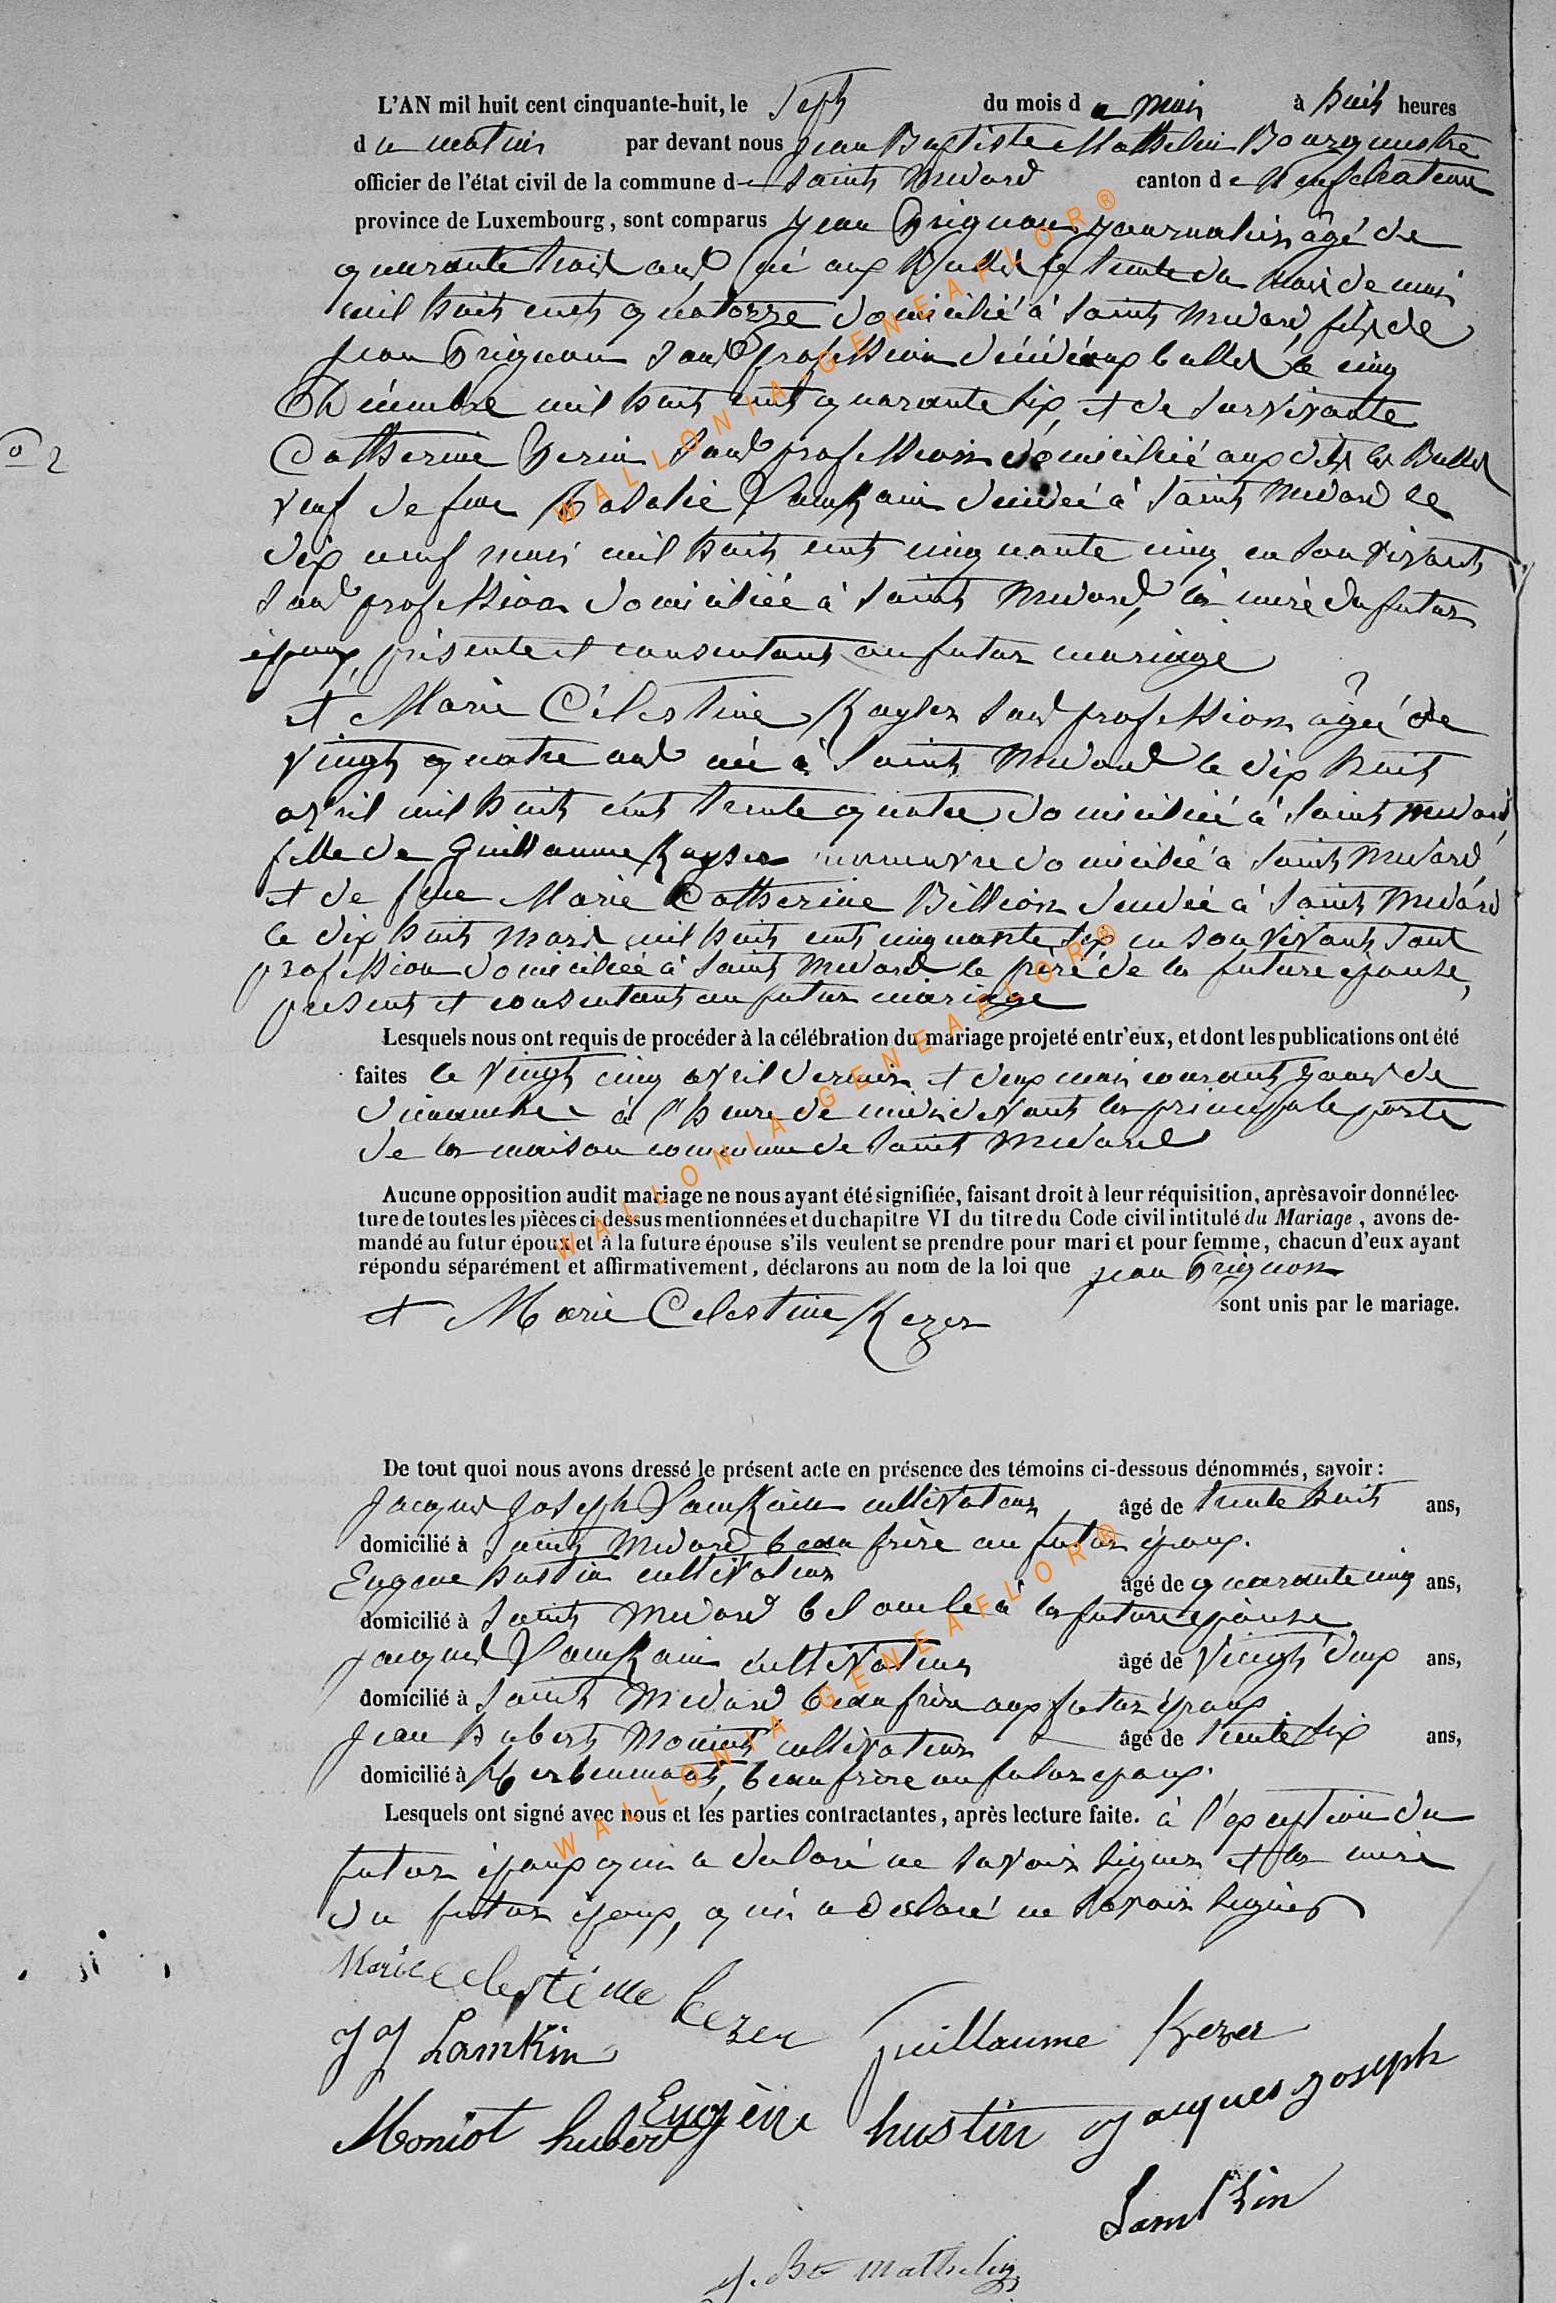 L'AN mil huit cent cinquante-huit, le sept du mois de mai à huit heures
du matin par devant nous jean Baptiste Mathelin Bourgmestre
officier de l'état civil de la commune de Saint Médard canton de Neufchateau
province de Luxembourg, sont comparus jean Grignon journalier âgé de
quarante trois ans né aux Bulles le trente du mois de mai
mil huit cent quatorze domicilié à Saint Médard, fils de
jean Grignon sans profession décédé aux bulles le cinq
décembre mil huit cent quarante six, et de survivante
Catherine sans profession domiciliée aux dits les Bulles
veuf de feue Rosalie Lamkain décédée à Saint Médard le
dix neuf mai mil huit cent cinquante cinq en son vivant
sans profession domiciliée à Saint Médard, la mère du futur
époux, présente et consentant au futur mariage
et Marie Célestine Kayser sans profession âgée de
vingt quatre ans née à Saint Médard le dix huit
avril mil huit cent trente quatre domiciliée à Saint Médard,
fille de Guillaume Kayser manœuvre domicilié à Saint Médard,
et de feue Marie Catherine Billion décédée à Saint Médard
le dix huit mars mil huit cent cinquante six en son vivant sans
profession domiciliée à Saint Médard le père de la future épouse,
présent et consentant au futur mariage
Lesquels nous ont requis de procéder à la célébration du mariage projeté entr'eux, et dont les publications ont été
faites le vingt cinq avril dernier et deux mai courant jours de
dimanche à l'heure de midi devant la principale porte
de la maison commune de Saint Médard
Aucune opposition audit mariage ne nous ayant été signifiée, faisant droit à leur réquisition, après avoir donné lec-
ture de toutes les pièces ci-dessus mentionnées et du chapitre VI du titre du Code civil intitulé du Mariage, avons de-
mandé au futur époux et à la future épouse s'ils veulent se prendre pour mari et pour femme, chacun d'eux ayant
répondu séparément et affirmativement, déclarons au nom de la loi que jean Grignon
et Marie Celestine Kezer sont unis par le mariage.
De tout quoi nous avons dressé le présent acte en présence des témoins ci-dessous dénommés, savoir :
Jacques Joseph Lamkain cultivateur âgé de trente huit ans,
domicilié à Saint Médard beau frère au futur époux.
Eugene hustin cultivateur âgé de quarante cinq ans,
domicilié à Saint Médard bel oncle à la future épouse
jacques Lamkain cultivateur âgé de vingt deux ans,
domicilié à Saint Médard beau frère aux futur époux
Jean hubert Moniot cultivateur âgé de trente six ans,
domicilié à Herbeumont, beau frère au futur époux.
Lesquels ont signé avec nous et les parties contractantes, après lecture faite. à l'exception du
futur époux qui a déclaré ne savoir signer et la mère
du futur époux, qui a déclaré ne savoir signer
Marie celestine kezer
JJ Lamkin guillaume Kezer
Moniot hubert Eugène hustin jacques joseph
Lamkin
j. Bte mathelin
WALLONIA-GENEAFLOR®
WALLONIA-GENEAFLOR®
WALLONIA-GENEAFLOR®